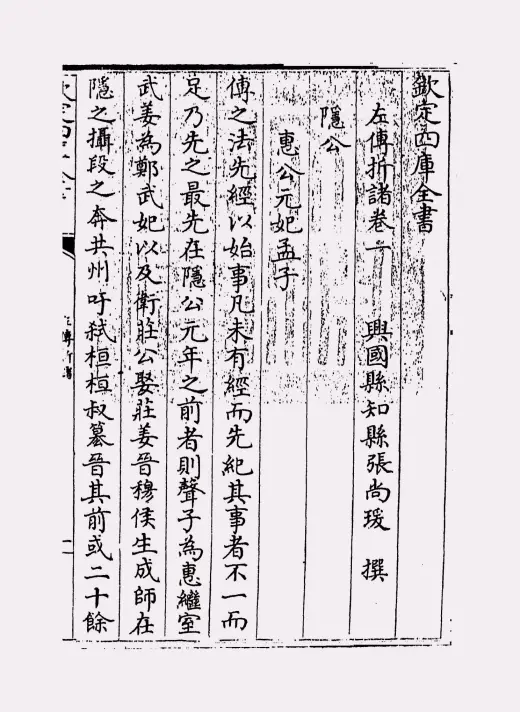 欽定四庫全書
左傳折諸卷一 興國縣知縣張尚瑗 撰
隱公
惠公元妃孟子
傳之法先經以始事凡未有經而先紀其事者不一而
足乃先之最先在隱公元年之前者則聲子為惠繼室
武姜為鄭武妃以及衛莊公娶莊姜晉穆侯生成師在
隱之攝段之奔共州吁弒桓桓叔簒晉其前或二十餘
左傳折諸